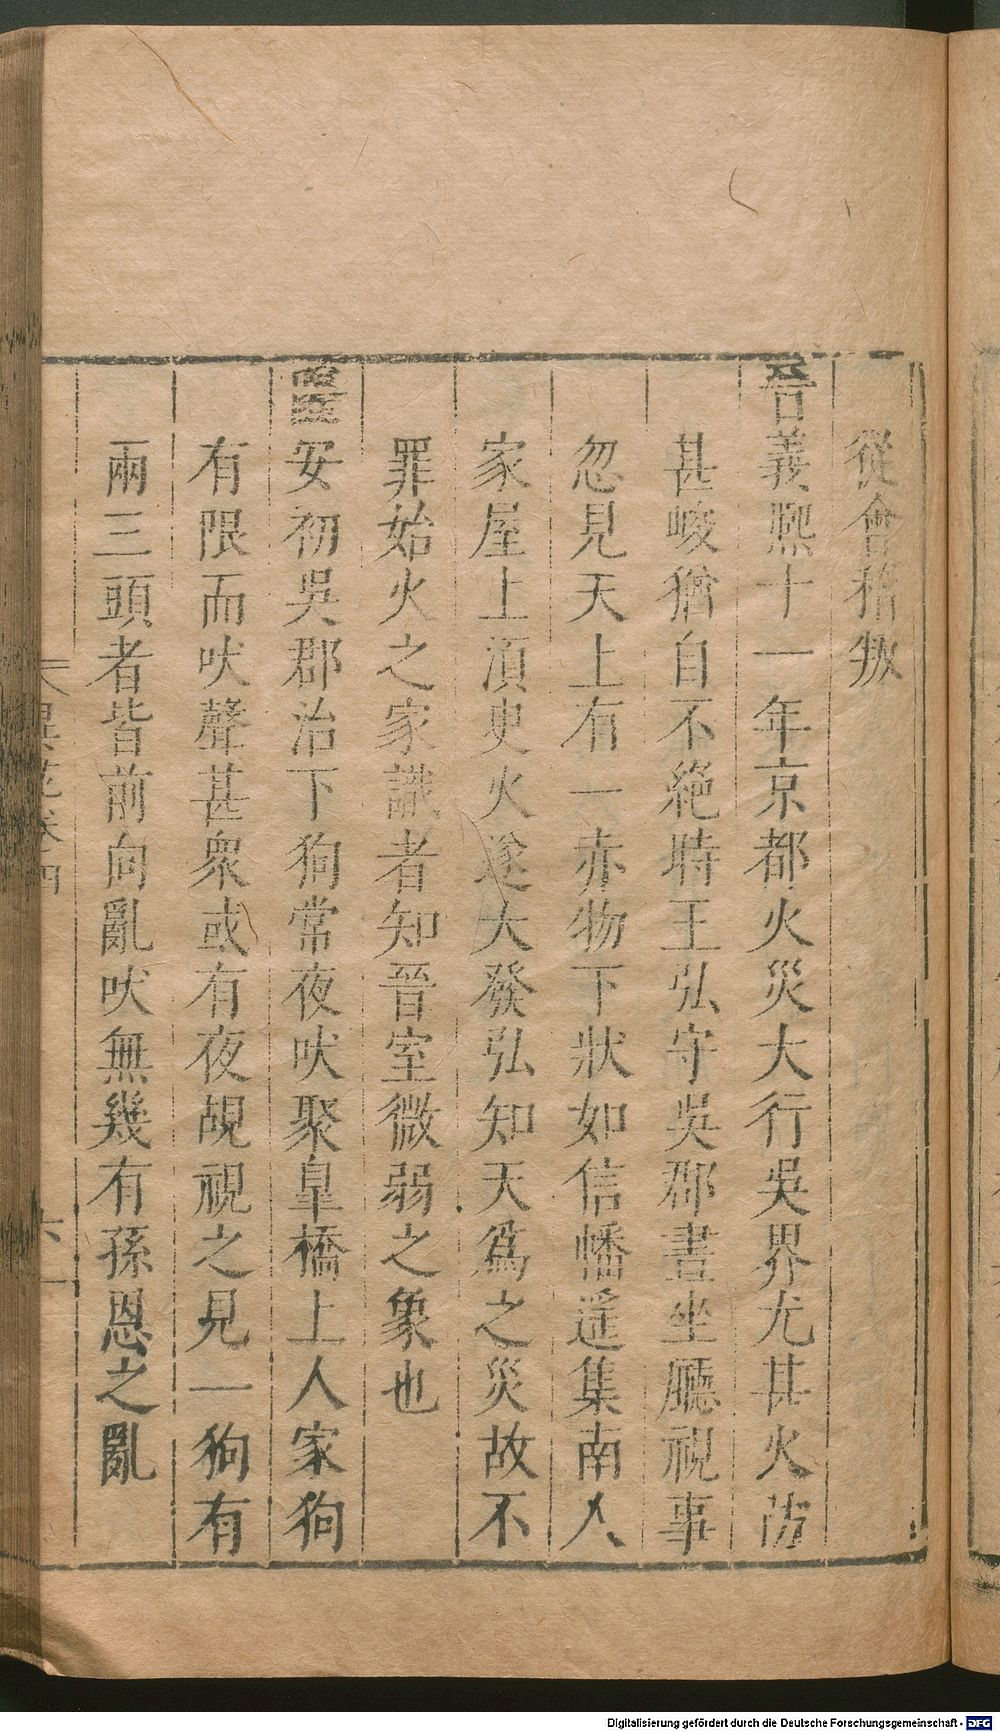 從會稽叛
晉義熙十一年京都火災大行吳界尤甚火防
甚峻猶自不絕時王弘守吳郡晝坐廳視事
忽見天上有一赤物下狀如信幡遥集南人
家屋上湏臾火遂大發弘知天爲之災故不
罪始火之家識者知晉室微弱之象也
安初吳郡治下狗常夜吠聚臯橋上人家狗
有限而吠聲甚衆或有夜覘視之見一狗有
兩三頭者皆前向亂吠無幾有孫恩之亂
異苑卷四
六
Digitalisierung gefördert durch die Deutsche Forschungsgemeinschaft - DFG